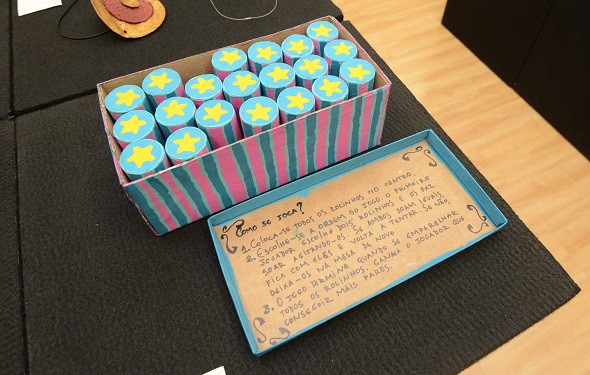 Como se joga?
1. Coloca-se todos os rolinhos no centro.
2. Escolhe-se a ordem do jogo o primeiro
jogador escolhe dois rolinhos e os faz
soar agitando-os. Se ambos soam iguais,
fica com eles e volta a tentar. Se não,
deixa-os na mesa de novo
3. O jogo termina quando se emparelhar
todos os rolinhos. Ganha o jogador que
conseguir mais pares.